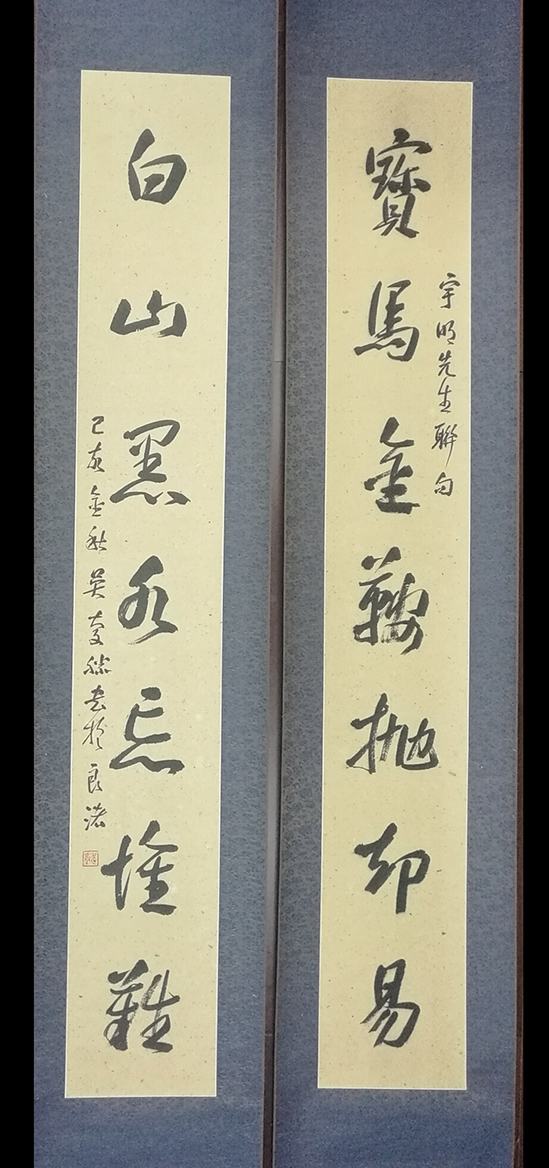 寶馬金鞍抛却易
宇明先生聯句
白山黑水忘難
己亥金秋吳書於良渚